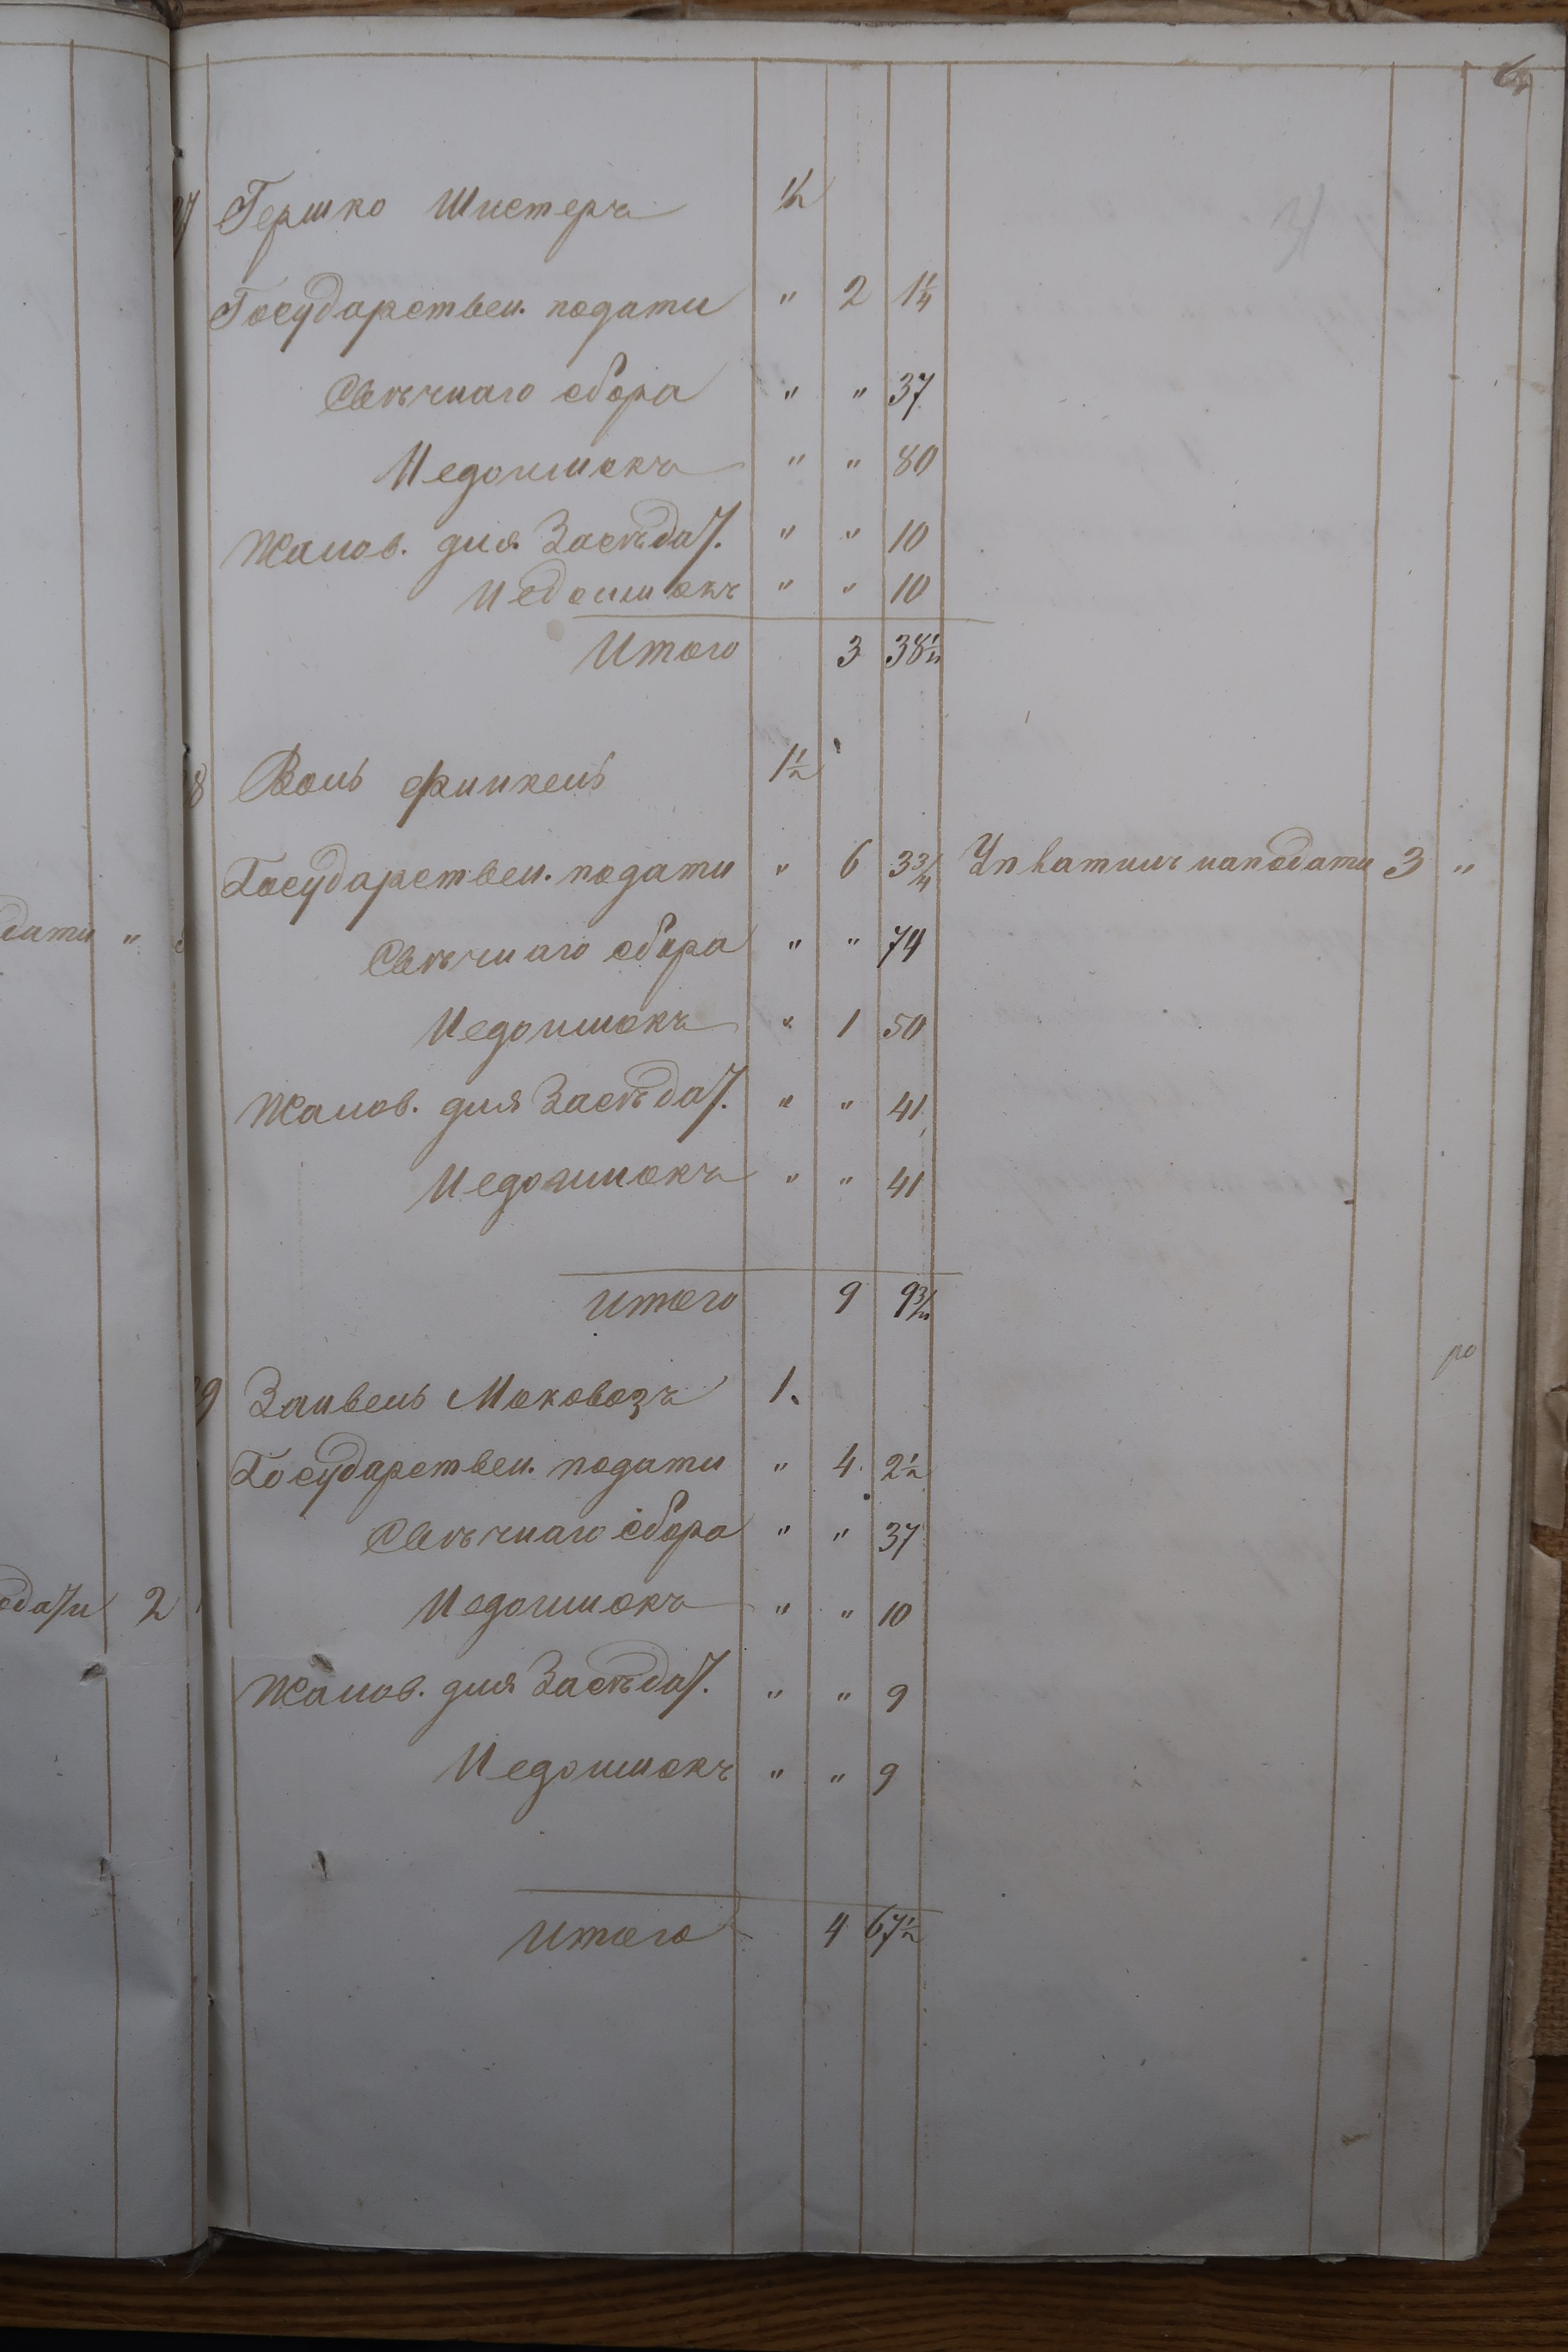 Гершко Шистеръ ½
Государствен. подати " 2 1¼
Свѣчнаго сбора " " 37
Недоимокъ " " 80
Жалов. для Засѣдат. " " 10
Недоимокъ " " 10
Итого 3 38½
8 Воль Финкель 1½
Государствен. подати " 6 3¾ Уплатилъ наподати 3 "
Свѣчнаго сбора " " 74
Недоимокъ " 1 50
Жалов. для Засѣдат. " " 41
Недоимокъ " " 41
Итого 9 9¾
9 Занвель Моковозъ 1.
Государствен. подати " 4 2½
Свѣчнаго сбора " " 37
Недоимокъ " " 10
Жалов. для Засѣдат. " " 9
Недоимокъ " " 9
Итого 4 67½
дати "
одати 2